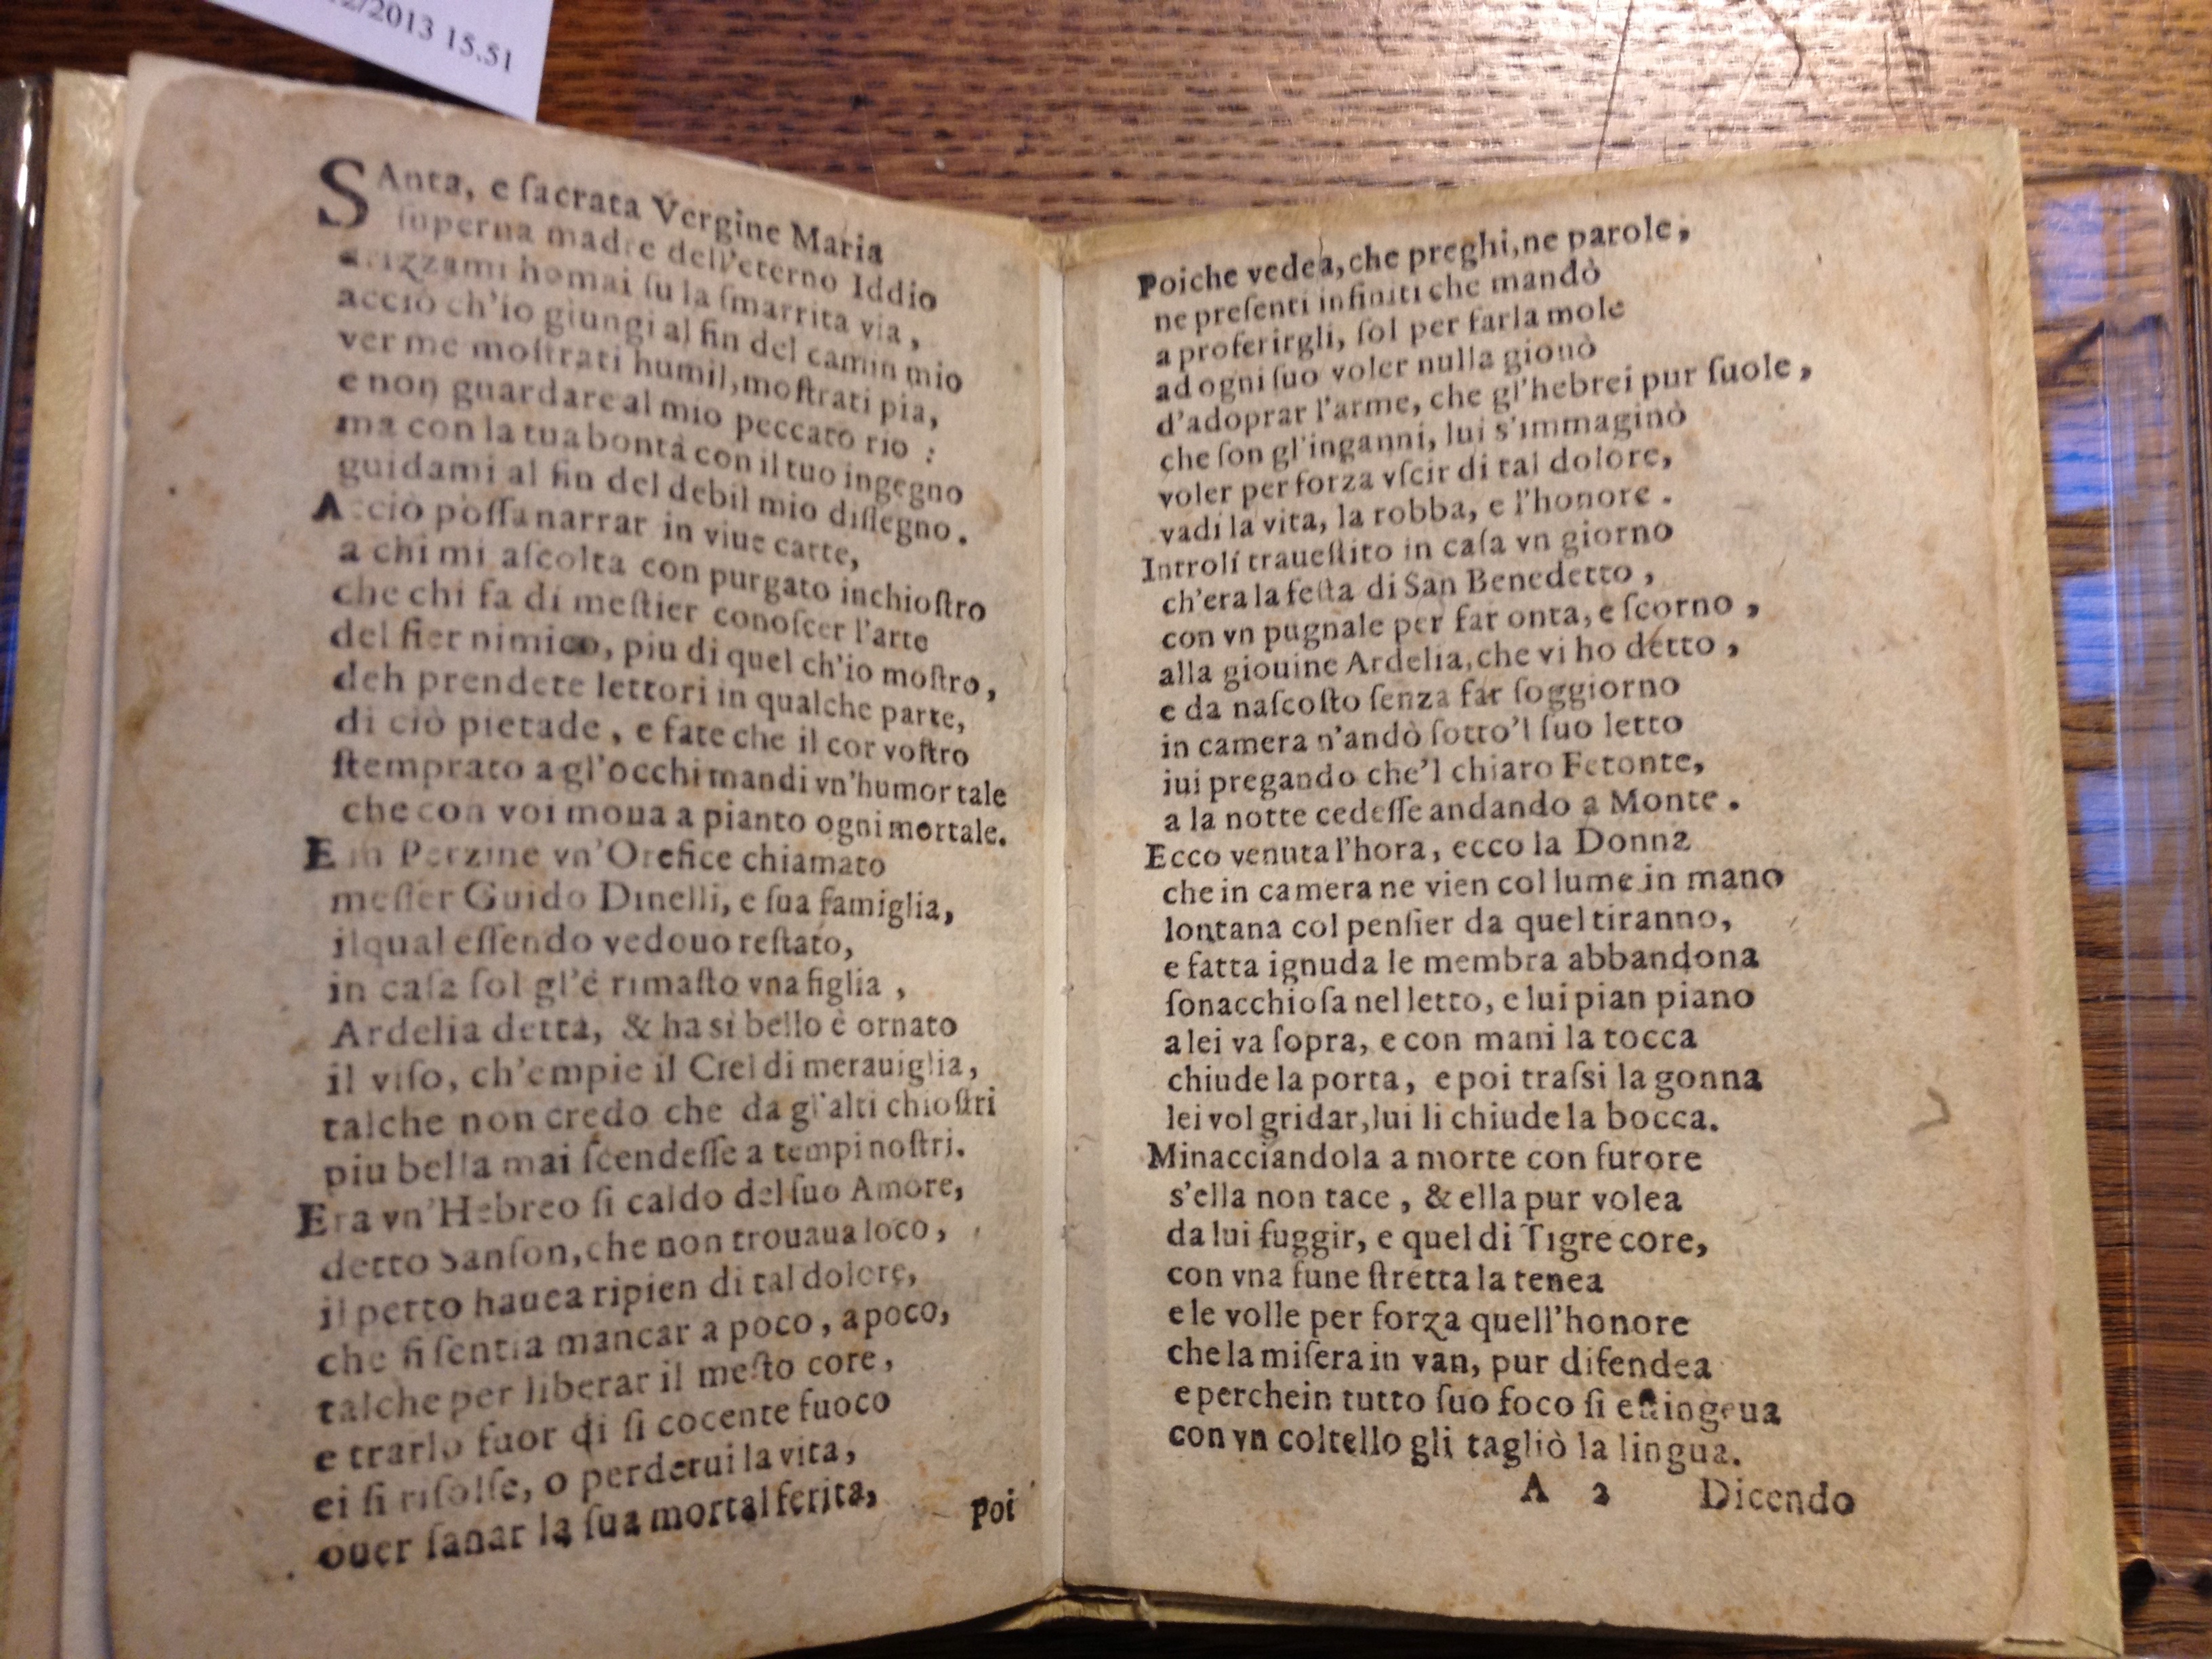 12/2013 15.51
SAnta, e ſacrata Vergine Maria
ſuperna madre dell'eterno Iddio
drizzami homai ſu la ſmarrita via,
acciò ch'io giungi al fin del camin mio
ver me moſtrati humil, moſtrati pia,
e non guardare al mio peccato rio :
ma con la tua bontà con il tuo ingegno
guidami al fin del debil mio diſſegno.
Acciò poſſa narrar in viue carte,
a chi mi aſcolta con purgato inchioſtro
che chi fa di meſtier conoſcer l'arte
del fier nimico, piu di quel ch'io moſtro,
deh prendete lettori in qualche parte,
di ciò pietade, e fate che il cor voſtro
ſtemprato a gl'occhi mandi vn'humor tale
che con voi moua a pianto ogni mortale.
E in Perzine vn'Orefice chiamato
meſſer Guido Dinelli, e ſua famiglia,
ilqual eſſendo vedouo reſtato,
in caſa ſol gl'è rimaſto vna figlia,
Ardelia detta, & ha si bello è ornato
il viſo, ch'empie il Ciel di merauiglia,
talche non credo che da gl'alti chioſtri
piu bella mai ſcendeſſe a tempi noſtri.
Era vn'Hebreo ſi caldo del ſuo Amore,
detto Sanſon, che non trouaua loco,
il petto hauea ripien di tal dolore,
che ſi ſentia mancar a poco, a poco,
talche per liberar il meſto core,
e trarlo fuor di ſi cocente fuoco
ei ſi riſolſe, o perderui la vita,
ouer ſanar la ſua mortal ferita,
Poi
Poiche vedea, che preghi, ne parole,
ne preſenti infiniti che mandò
a proferirgli, ſol per farla mole
ad ogni ſuo voler nulla giouò
d'adoprar l'arme, che gl'hebrei pur ſuole,
che ſon gl'inganni, lui s'immaginò
voler per forza vſcir di tal dolore,
vadi la vita, la robba, e l'honore.
Introlſi traueſtito in caſa vn giorno
ch'era la feſta di San Benedetto,
con vn pugnale per far onta, e ſcorno,
alla giouine Ardelia, che vi ho detto,
e da naſcoſto ſenza far ſoggiorno
in camera n'andò ſotto'l ſuo letto
iui pregando che'l chiaro Fetonte,
a la notte cedeſſe andando a Monte.
Ecco venuta l'hora, ecco la Donna
che in camera ne vien col lume in mano
lontana col penſier da quel tiranno,
e fatta ignuda le membra abbandona
ſonacchioſa nel letto, e lui pian piano
a lei va ſopra, e con mani la tocca
chiude la porta, e poi traſsi la gonna
lei vol gridar, lui li chiude la bocca.
Minacciandola a morte con furore
s'ella non tace, & ella pur volea
da lui fuggir, e quel di Tigre core,
con vna fune ſtretta la tenea
e le volle per forza quell'honore
che la miſera in van, pur difendea
e perche in tutto ſuo foco ſi eſtingeua
con vn coltello gli tagliò la lingua.
A 2 Dicendo